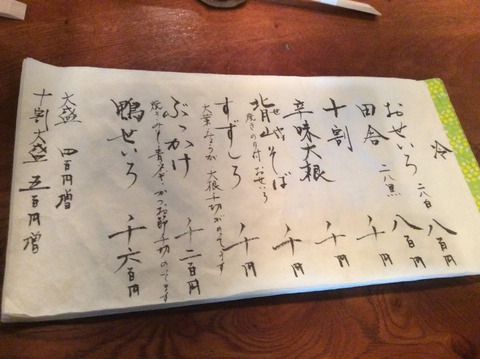 冷
おせいろ 二八白 八百円
田舎 二八黒 八百円
十割 千円
辛味大根 千円
そば 千円
焼きのり付 おせいろ
すずしろ 千円
大葉 みょうが 大根千切がのってます
ぶっかけ 千二百円
かつお節 千切のってます
鴨せいろ 千六百円
大盛 四百円増
十割大盛 五百円増